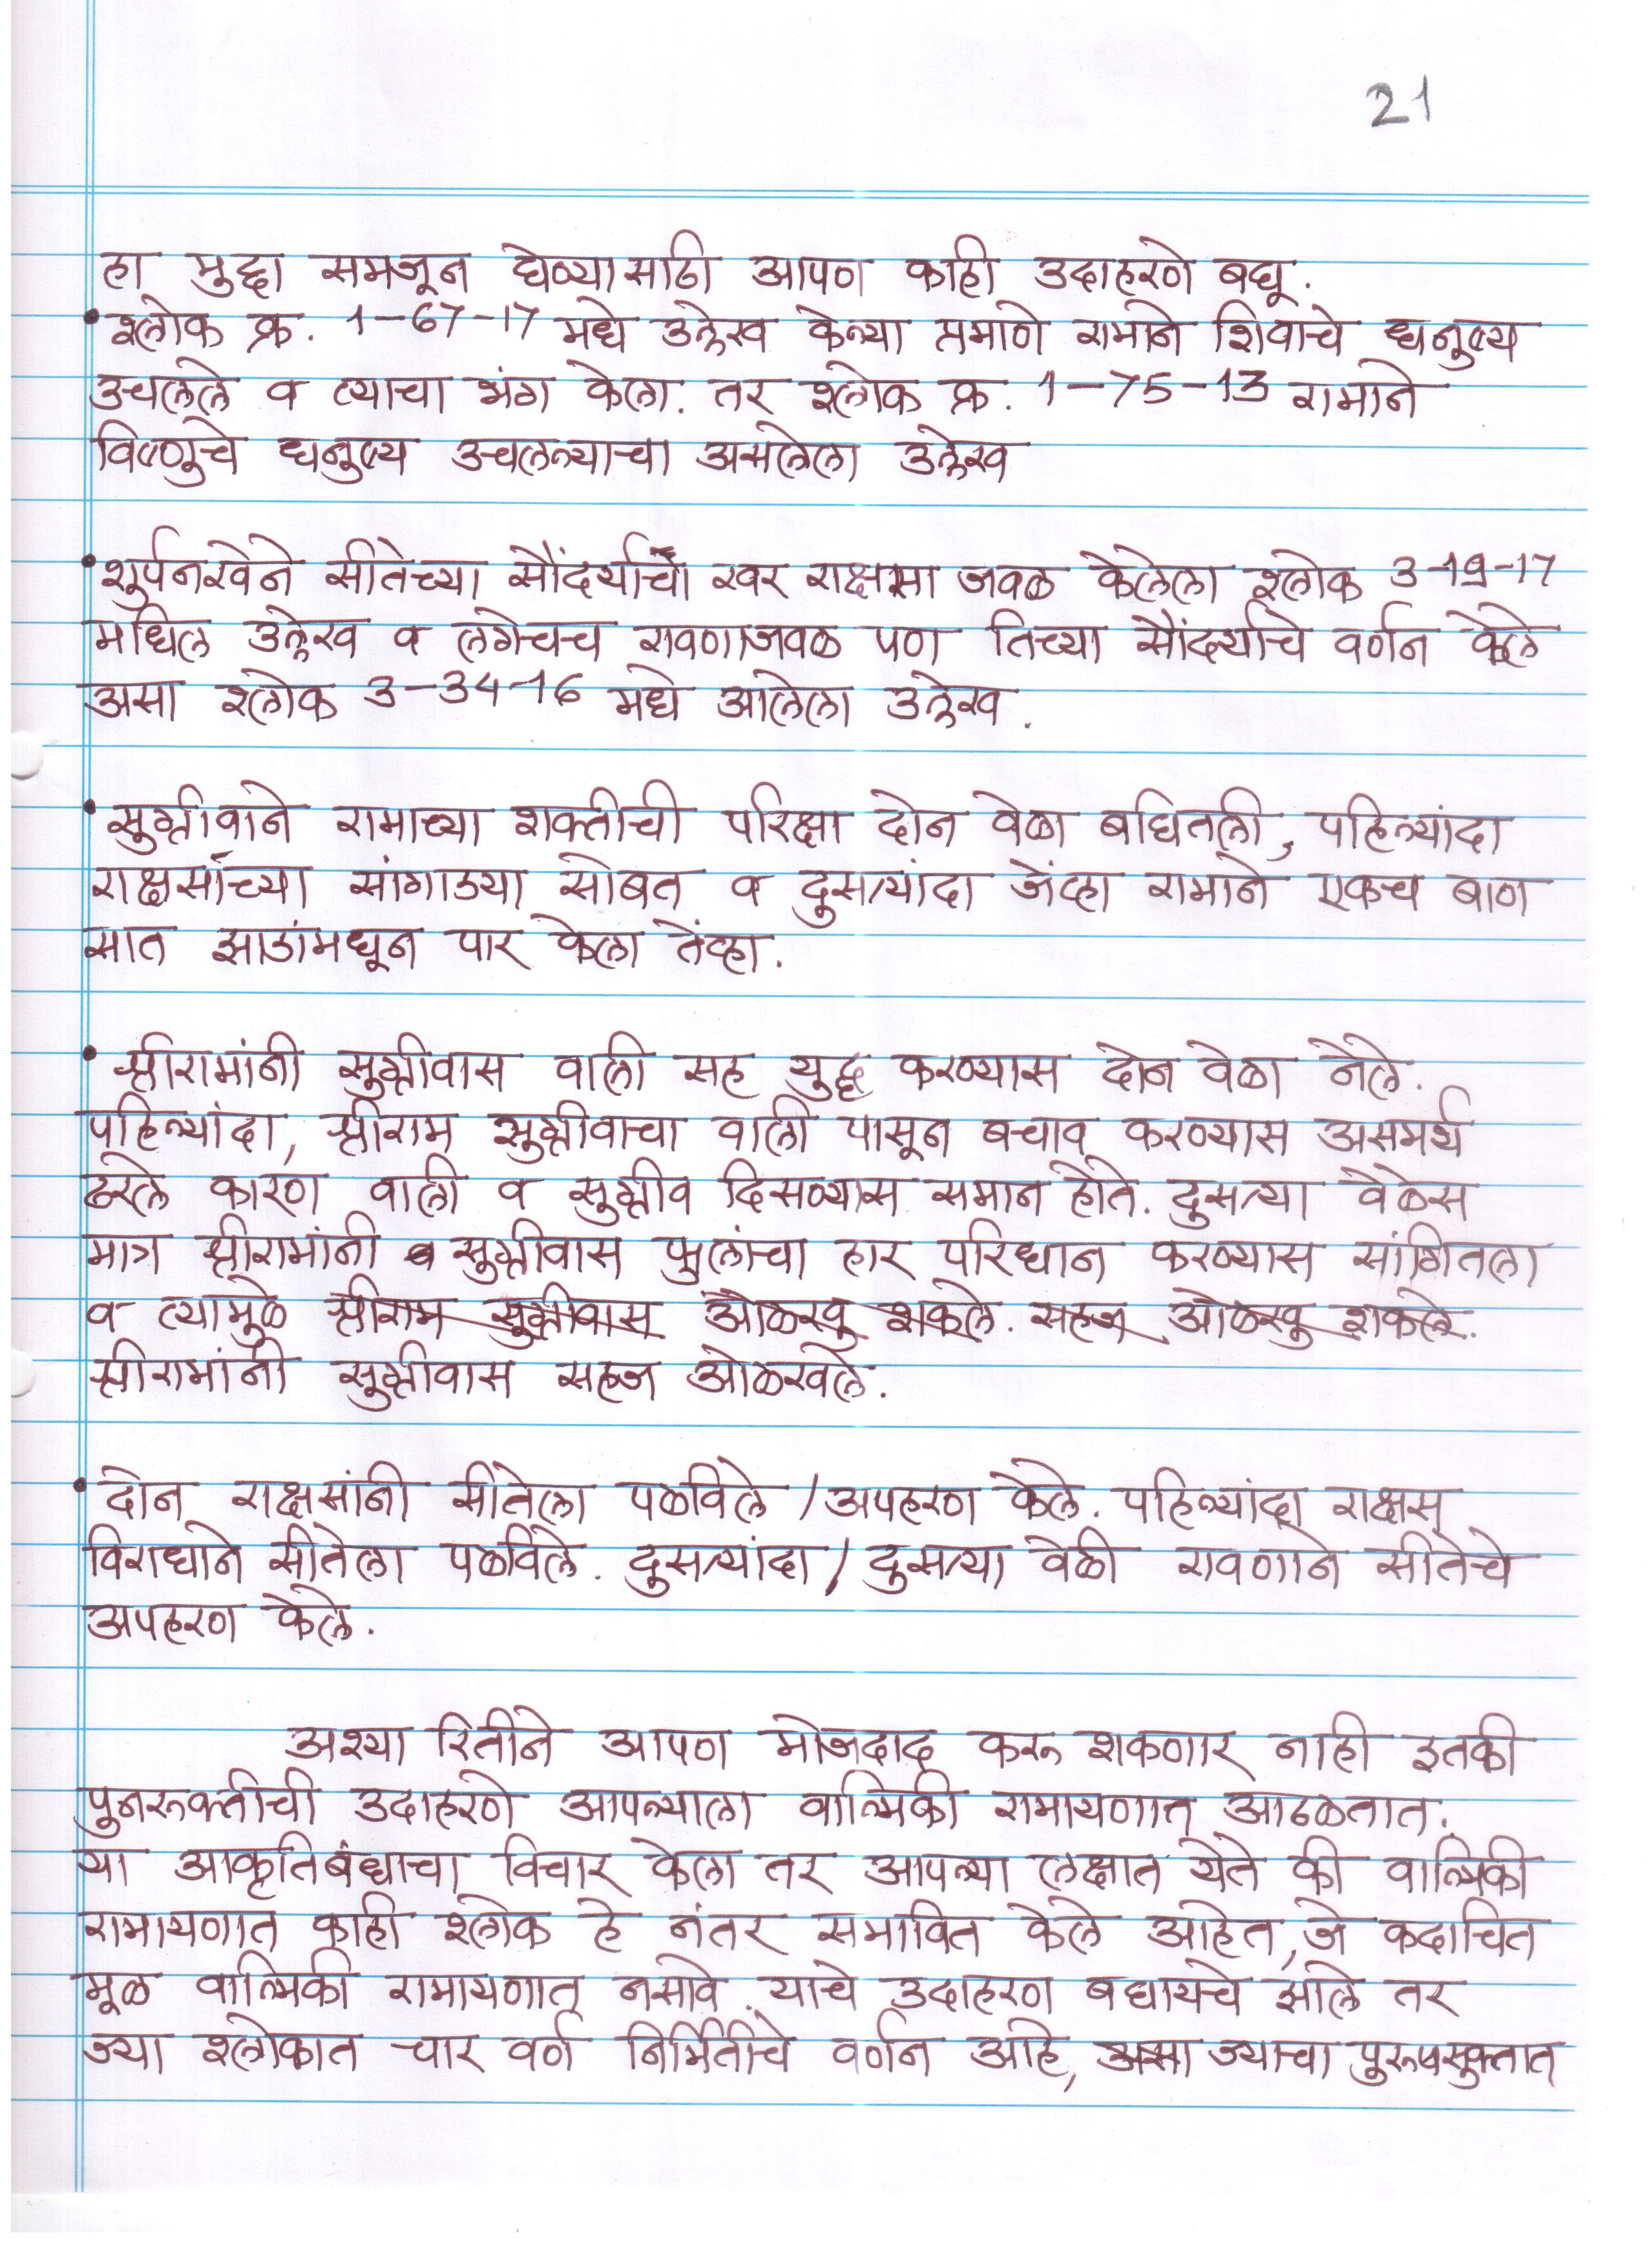 21
हा मुद्दा समजून घेण्यासाठी आपण काही उदाहरणे बघू.
• श्लोक क्र. 1-67-17 मधे उल्लेख केल्या प्रमाणे रामाने शिवाचे धनुष्य
उचलले व त्याचा भंग केला. तर श्लोक क्र. 1-75-13 रामाने
विष्णुचे धनुष्य उचलल्याचा असलेला उल्लेख
• शुर्पनखेने सीतेच्या सौंदर्याचा खर राक्षसा जवळ केलेला श्लोक 3-19-17
मधिल उल्लेख व लगेचच रावणाजवळ पण तिच्या सौंदर्याचे वर्णन केले
असा श्लोक 3-34-16 मधे आलेला उल्लेख.
• सुग्रीवाने रामाच्या शक्तीची परिक्षा दोन वेळा बघितली, पहिल्यांदा
राक्षसाच्या सांगाड्या सोबत व दुसऱ्यांदा जेंव्हा रामाने एकच बाण
सात झाडांमधून पार केला तेंव्हा.
• श्रीरामांनी सुग्रीवास वाली सह युद्ध करण्यास दोन वेळा नेले.
पहिल्यांदा, श्रीराम सुग्रीवाचा वाली पासून बचाव करण्यास असमर्थ
ठरले कारण वाली व सुग्रीव दिसण्यास समान होते. दुसऱ्या वेळेस
मात्र श्रीरामांनी सुग्रीवास फुलांचा हार परिधान करण्यास सांगितला
व त्यामुळे श्रीराम सुग्रीवास ओळखु शकले. सहज ओळखु शकले.
श्रीरामांनी सुग्रीवास सहज ओळखले.
• दोन राक्षसांनी सीतेला पळविले / अपहरण केले. पहिल्यांदा राक्षस
विराधाने सीतेला पळविले. दुसऱ्यांदा / दुसऱ्या वेळी रावणाने सीतेचे
अपहरण केले.
अश्या रितीने आपण मोजदाद करू शकणार नाही इतकी
पुनरूक्तीची उदाहरणे आपल्याला वाल्मिकी रामायणात आढळतात.
या आकृतिबंधाचा विचार केला तर आपल्या लक्षात येते की वाल्मिकी
रामायणात काही श्लोक हे नंतर समावित केले आहेत, जे कदाचित
मूळ वाल्मिकी रामायणात नसावे. याचे उदाहरण बघायचे झाले तर
ज्या श्लोकात चार वर्ण निर्मितीचे वर्णन आहे, असा ज्याचा पुरूषसुक्तात